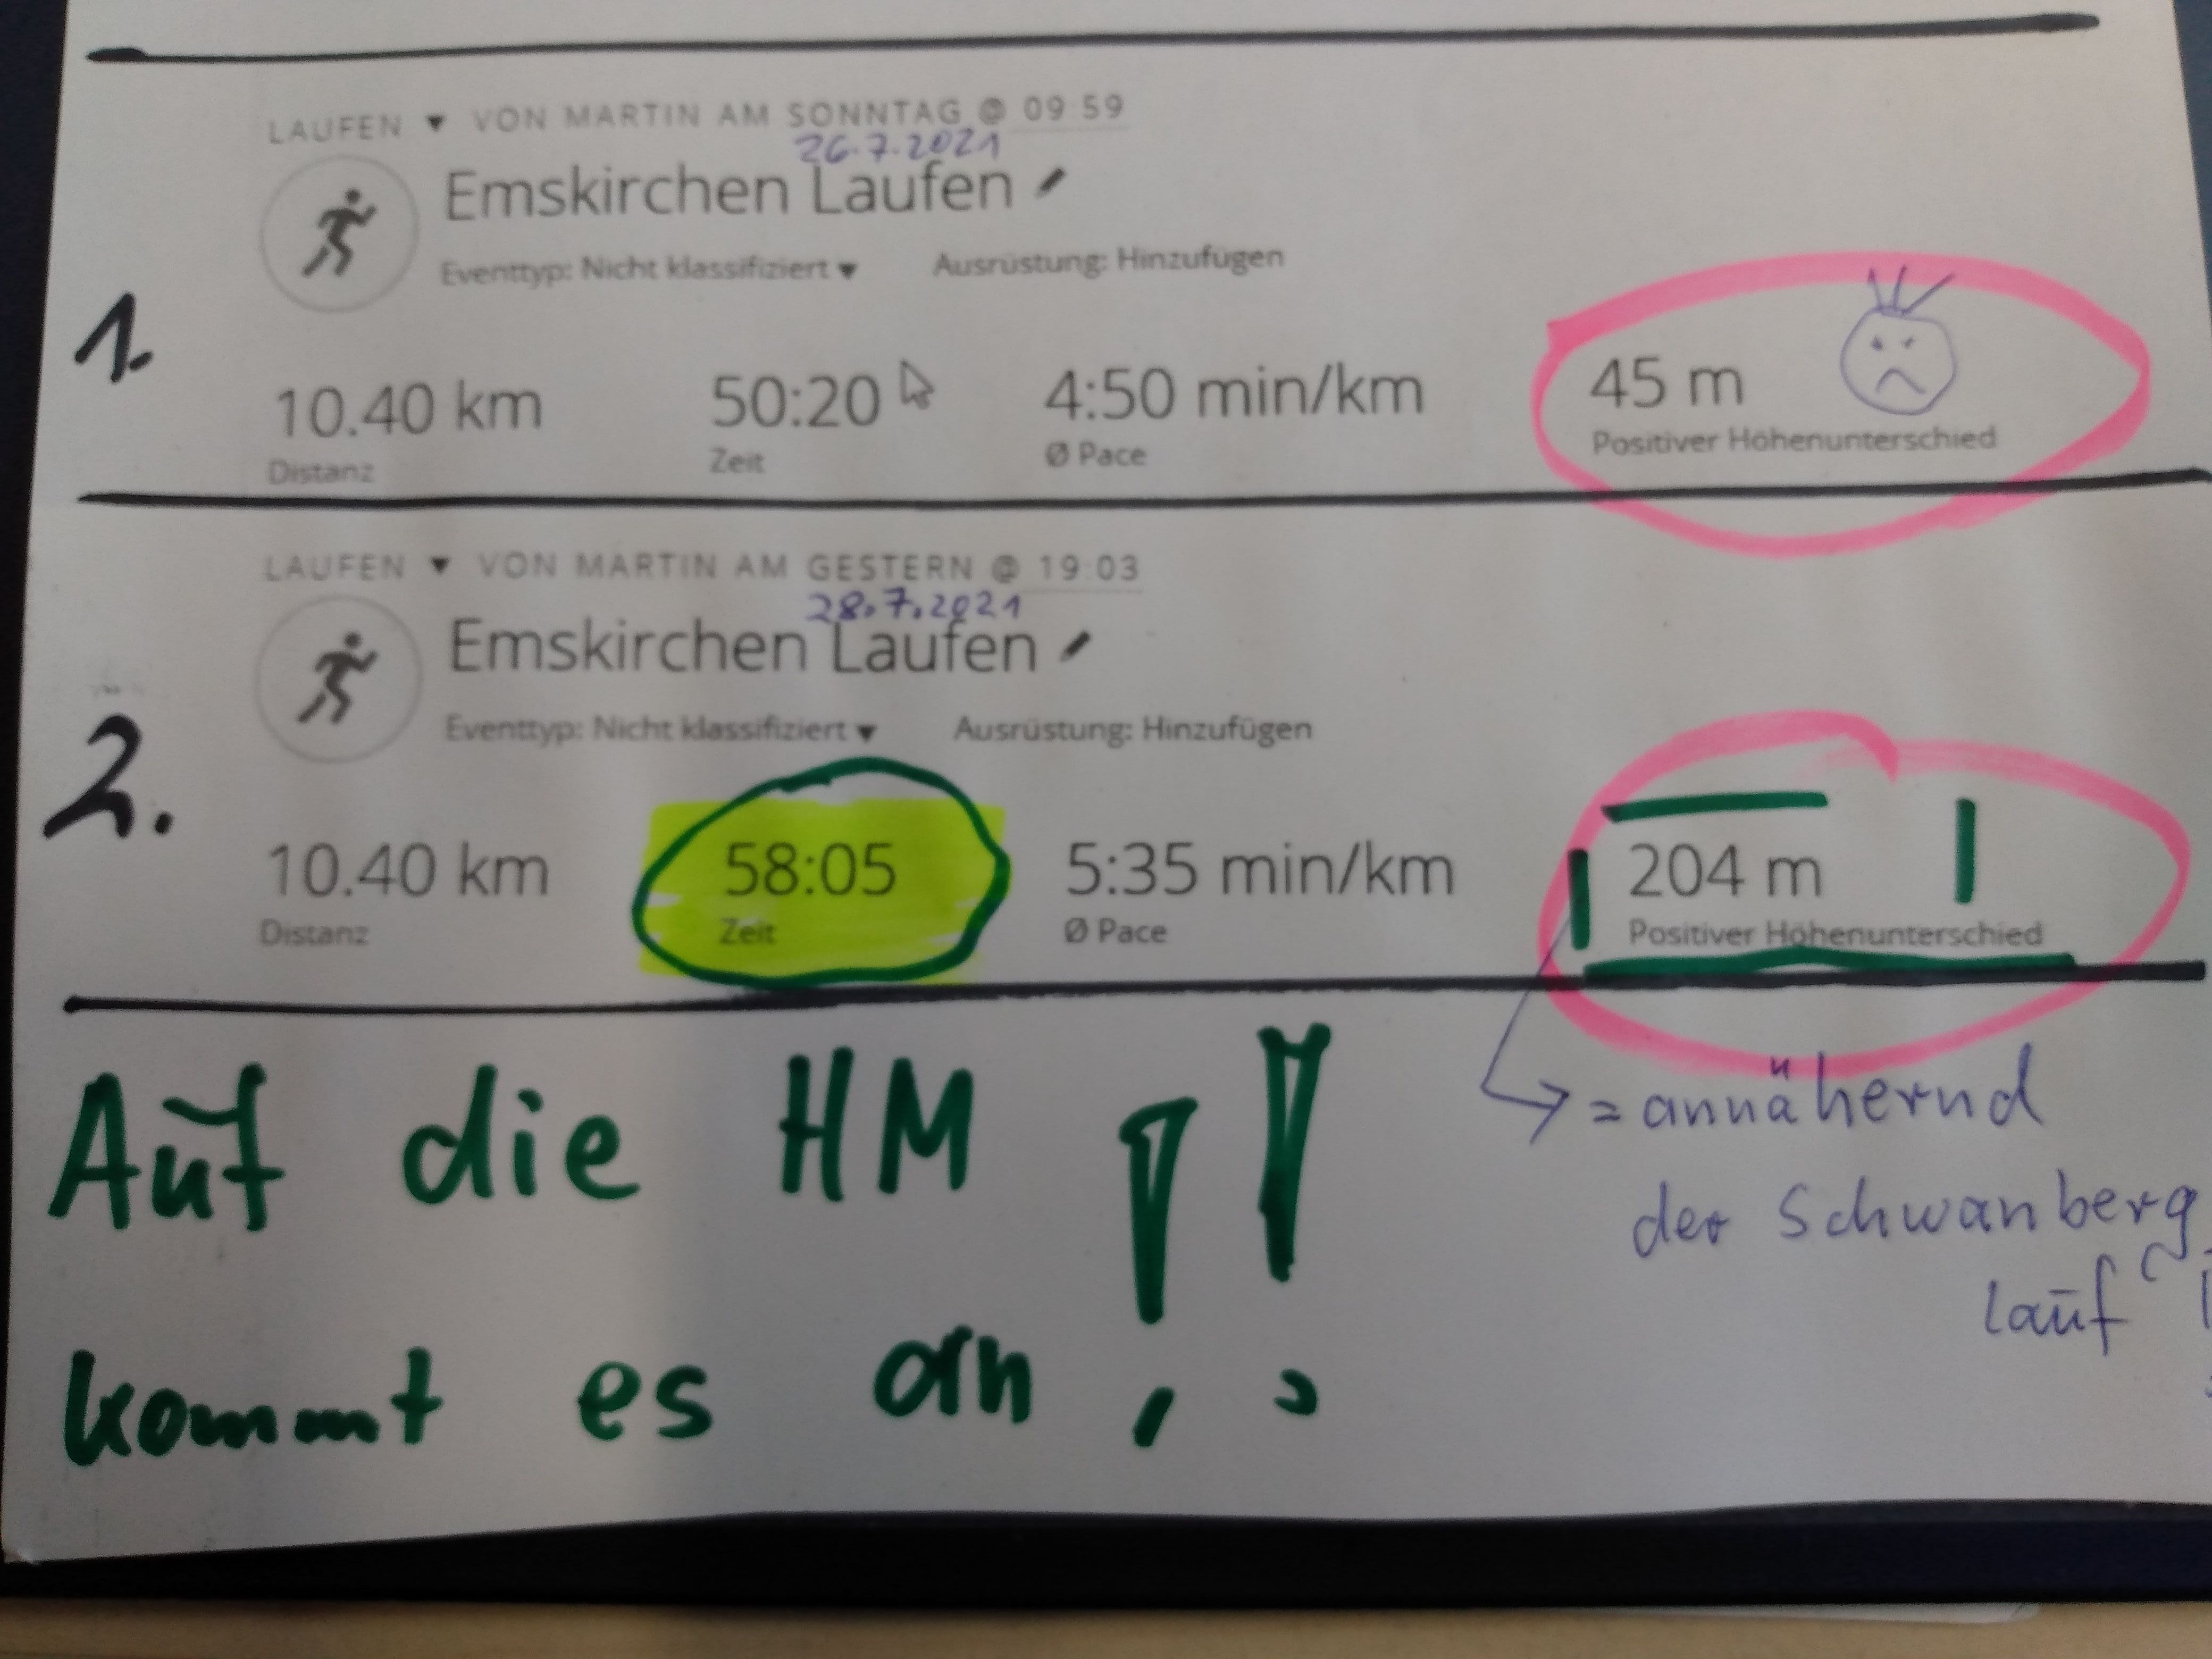 LAUFEN ▼ VON MARTIN AM SONNTAG @ 09:59
26.7.2021
Emskirchen Laufen
Eventtyp: Nicht klassifiziert ▼ Ausrüstung: Hinzufügen
1.
10.40 km 50:20 4:50 min/km 45 m
Distanz Zeit Ø Pace Positiver Höhenunterschied
LAUFEN ▼ VON MARTIN AM GESTERN @ 19:03
28.7.2021
Emskirchen Laufen
Eventtyp: Nicht klassifiziert ▼ Ausrüstung: Hinzufügen
2.
10.40 km 58:05 5:35 min/km 204 m
Distanz Zeit Ø Pace Positiver Höhenunterschied
Auf die HM
kommt es an !!
= annähernd
der Schwanberg
lauf